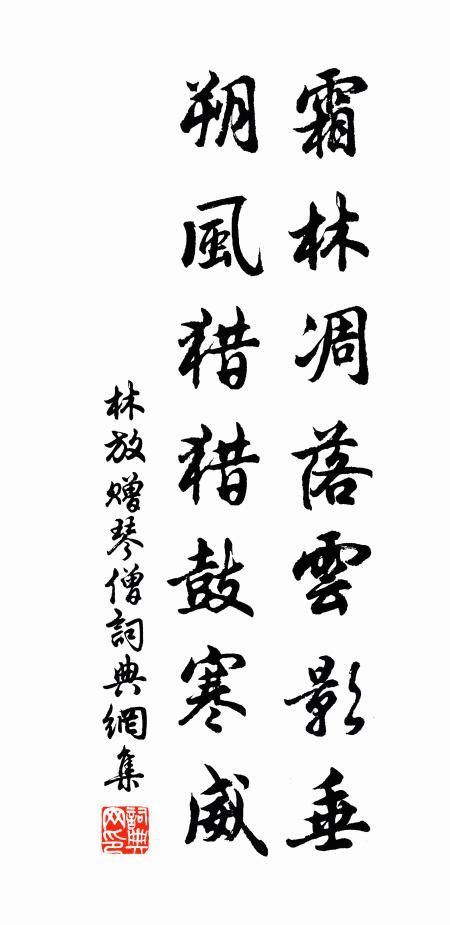 霜林凋落雲影垂
朔風猎猎鼓寒威
林放贈琴僧詞典網集
詞典网印